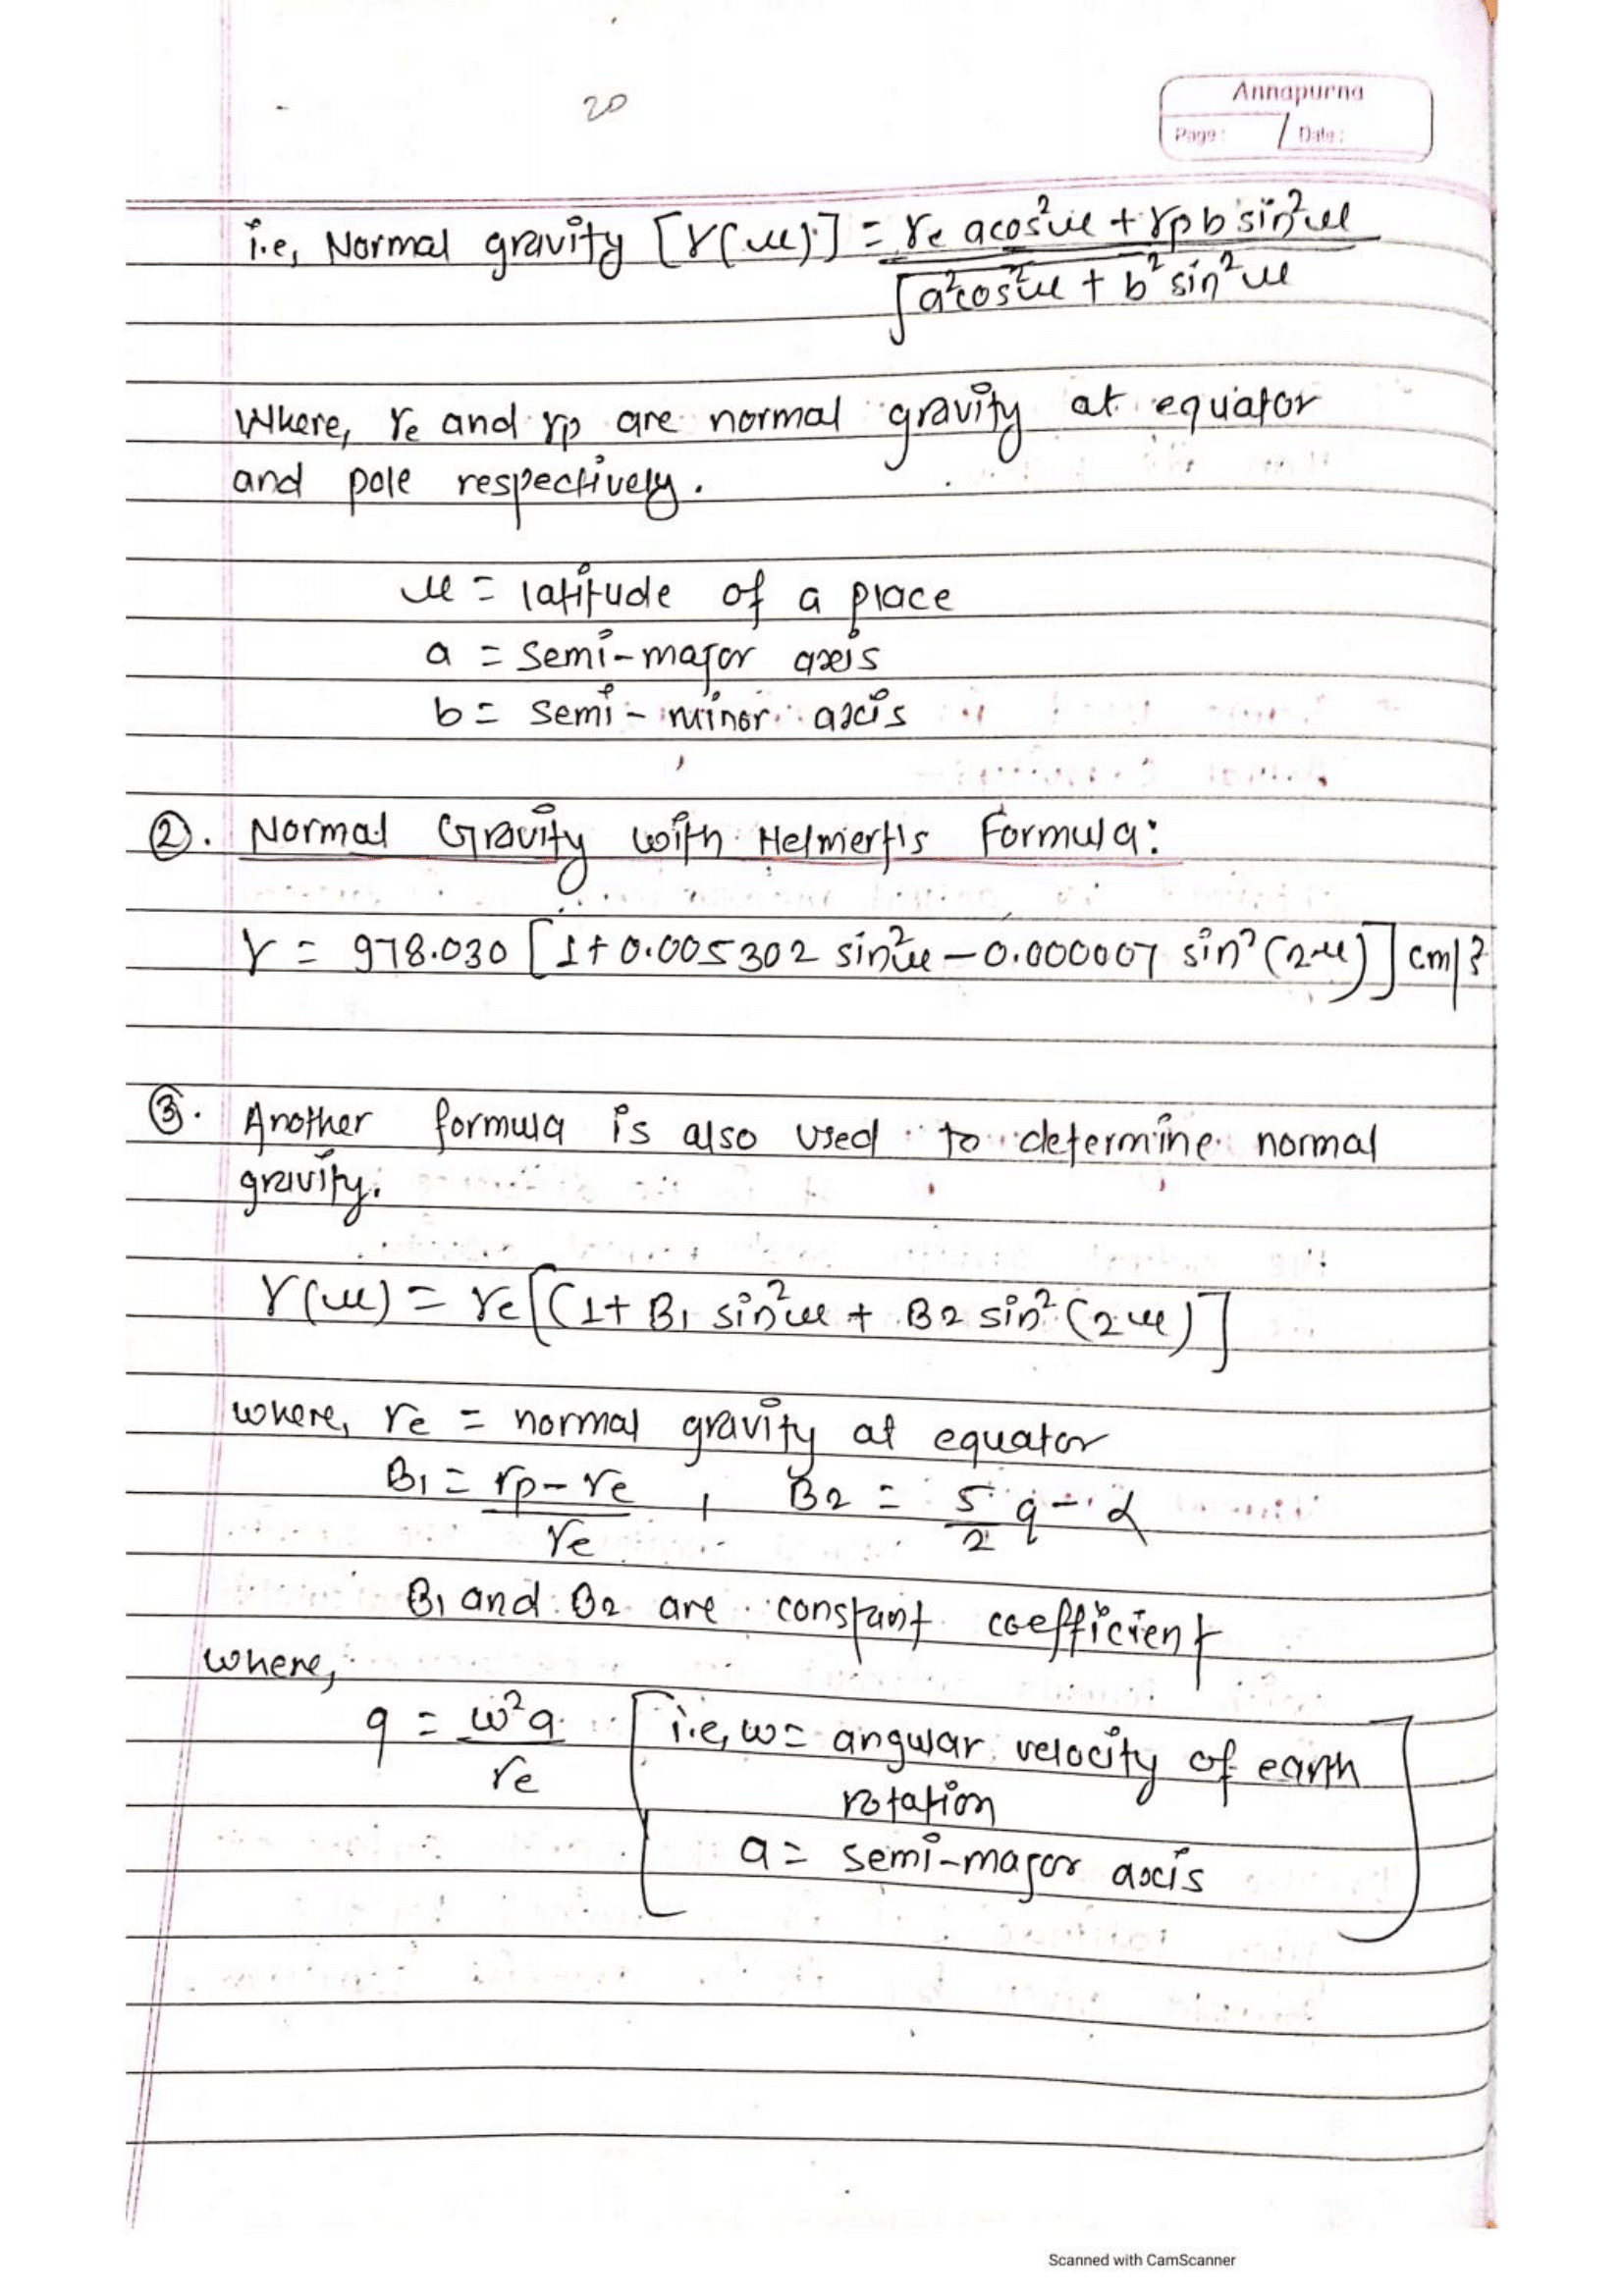 20
Annapurna
Page: / Date:
i.e, Normal gravity [γ(ϕ)] = γe a cos²ϕ + γp b sin²ϕ
√a²cos²ϕ + b² sin²ϕ
Where, γe and γp are normal gravity at equator
and pole respectively.
ϕ = latitude of a place
a = semi-major axis
b = semi-minor axis
②. Normal Gravity with Helmert's Formula:
γ = 978.030 [1 + 0.005302 sin²ϕ - 0.000007 sin²(2ϕ)] cm/s²
③. Another formula is also used to determine normal
gravity.
γ(ϕ) = γe[(1 + B1 sin²ϕ + B2 sin²(2ϕ)]
where, γe = normal gravity at equator
B1 = γp - γe / γe , B2 = 5/2 q - α
B1 and B2 are constant coefficient
where,
q = ω²a / γe [i.e, ω = angular velocity of earth
rotation
a = semi-major axis]
Scanned with CamScanner